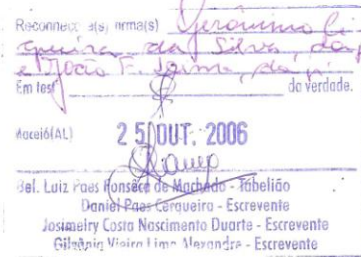 Reconheço a(s) firma(s) Jeronimo Ci-
queira da Silva, da
e João F. Lorma, da
Em test da verdade.
Maceió(AL) 25 OUT. 2006
Bel. Luiz Paes Fonseca de Machado - Tabelião
Daniel Paes Cerqueira - Escrevente
Josimeiry Costa Nascimento Duarte - Escrevente
Gildânia Vieira Lima Alexandre - Escrevente